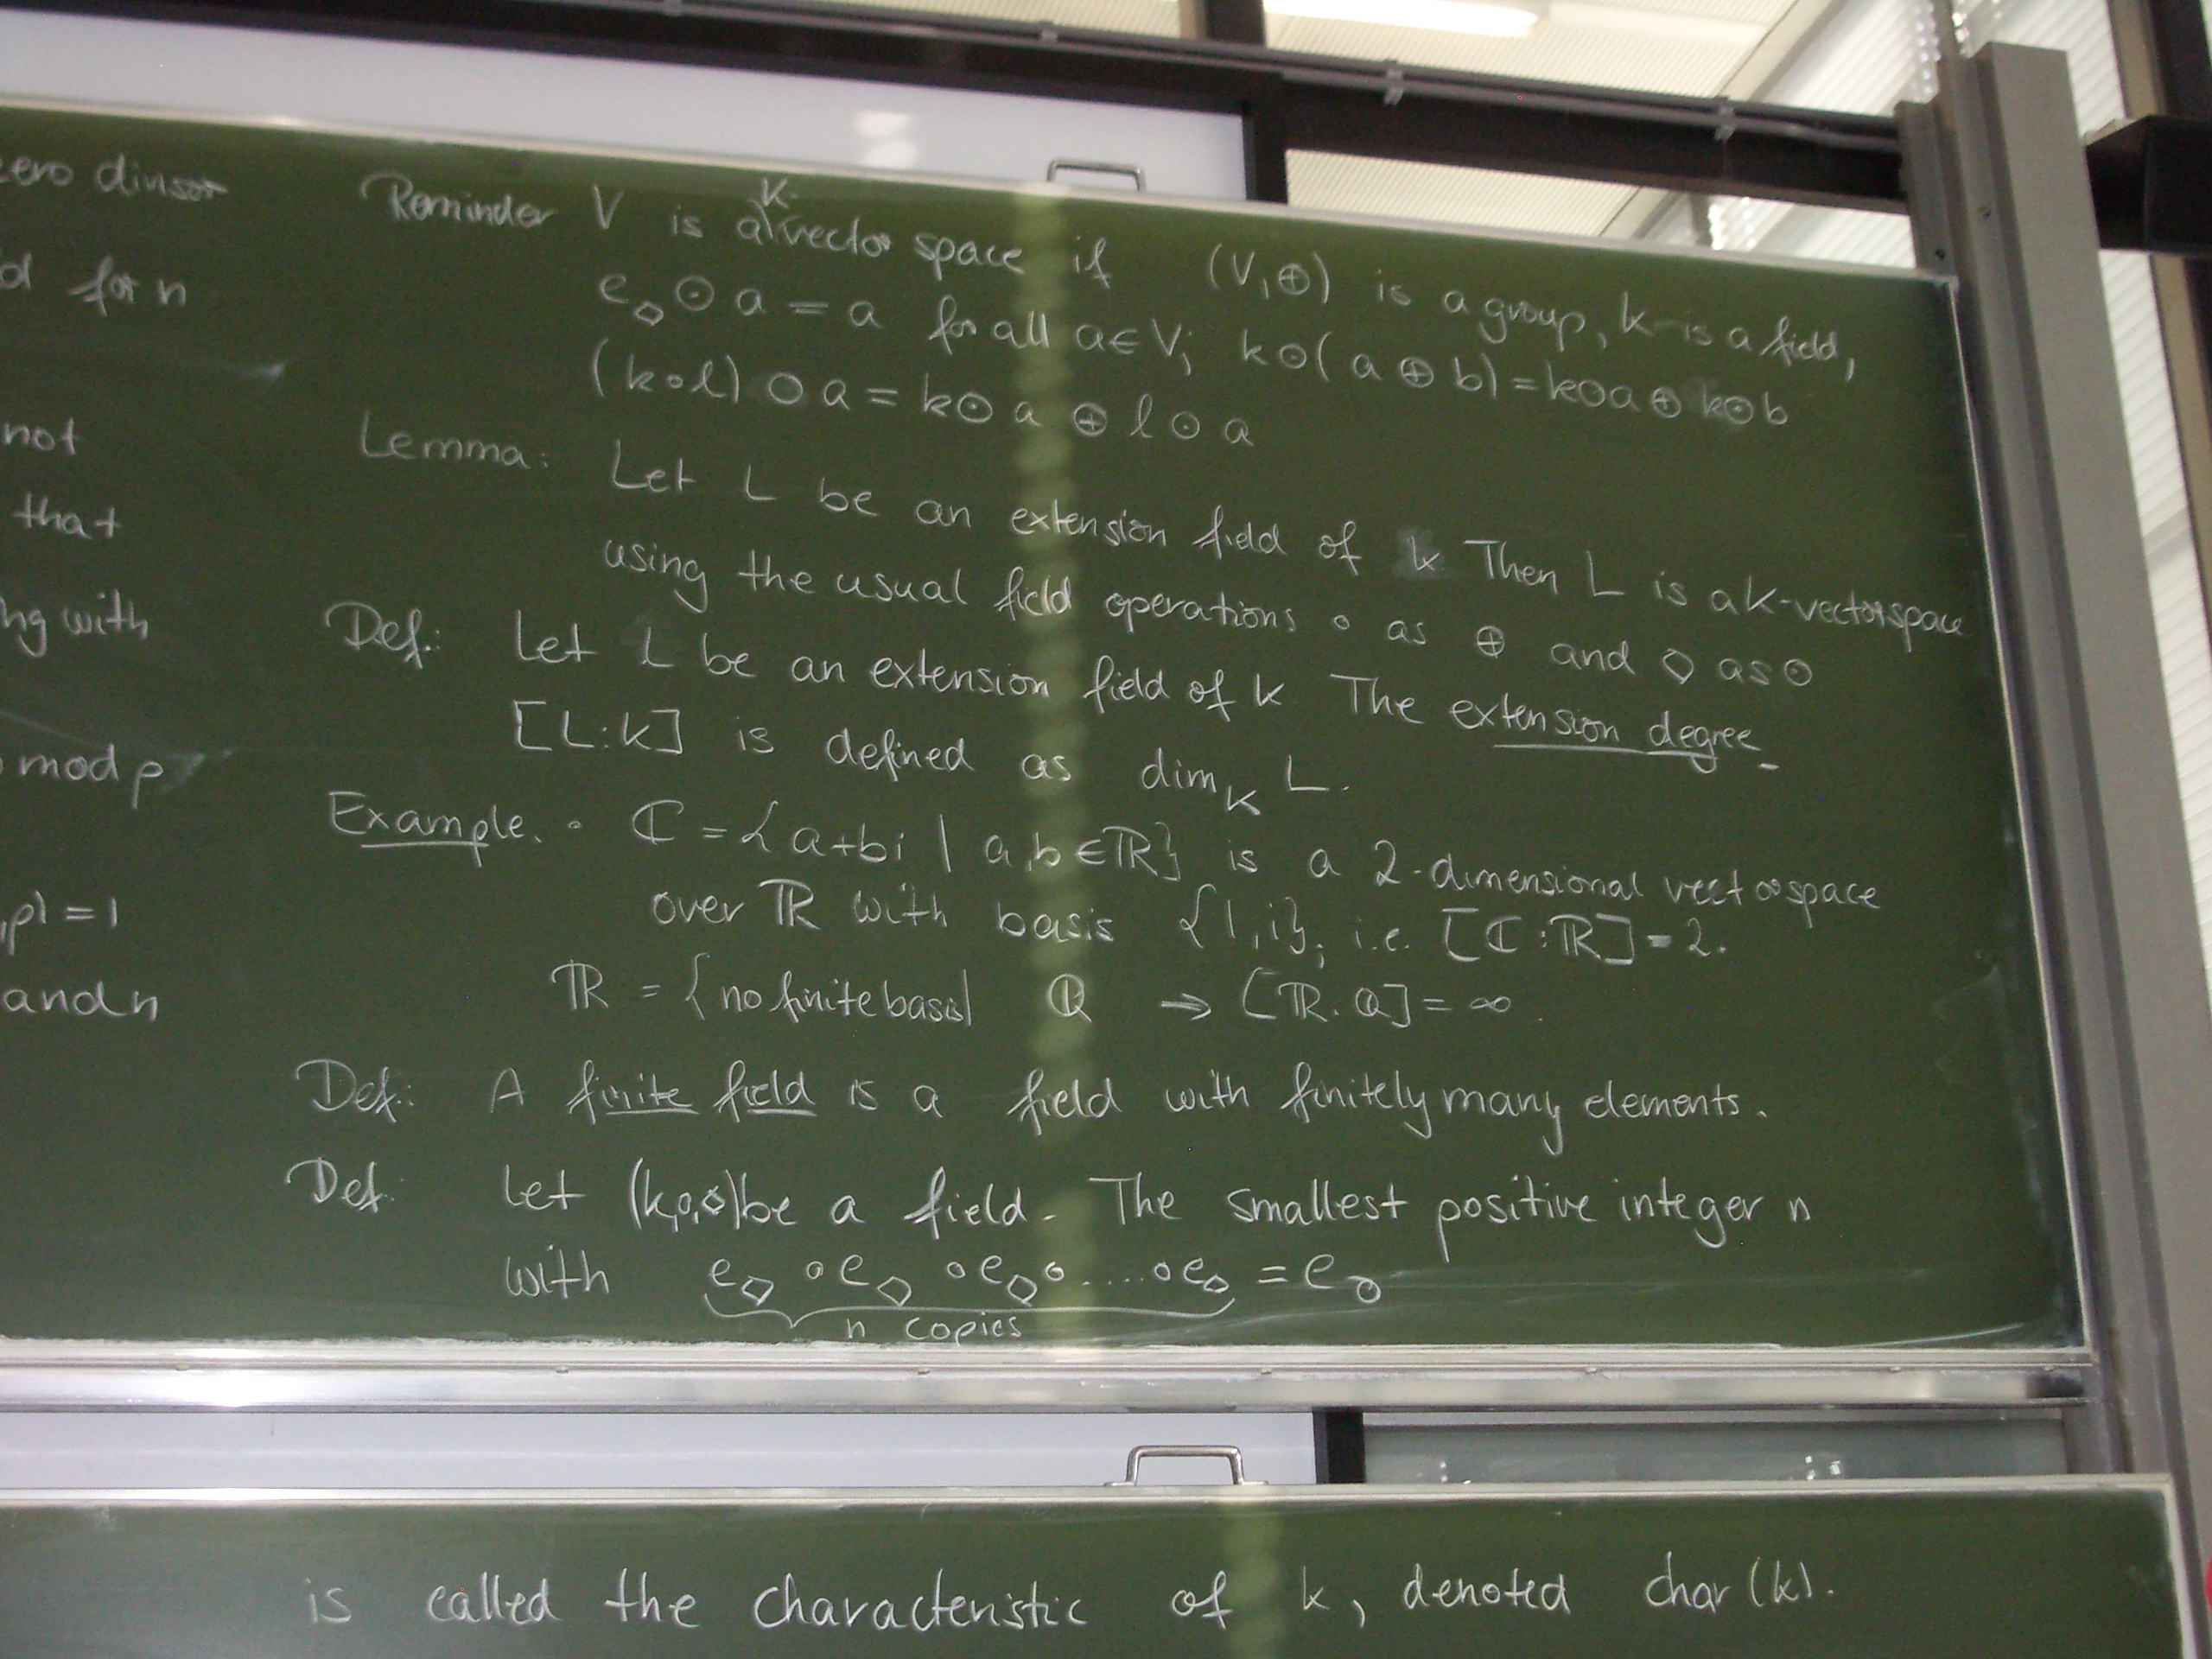 zero divisor
d for n
not
that
ng with
mod p
,p) = 1
and n
Reminder V is a K-vector space if (V,⊕) is a group, K is a field,
e◇ ⊙ a = a for all a∈V; k⊙(a ⊕ b) = k⊙a ⊕ k⊙b
(k∘l) ⊙ a = k⊙ a ⊕ l ⊙ a
Lemma: Let L be an extension field of K Then L is a K-vectorspace
using the usual field operations ∘ as ⊕ and ◇ as ⊙
Def.: Let L be an extension field of K The extension degree
[L:K] is defined as dim_K L.
Example. ∘ ℂ = {a+bi | a,b ∈ ℝ} is a 2-dimensional vectorspace
over ℝ with basis {1,i}, i.e. [ℂ:ℝ] = 2.
ℝ = {no finite basis| ℚ ⇒ [ℝ:ℚ] = ∞.
Def.: A finite field is a field with finitely many elements.
Def: Let (K,∘,◇) be a field. The smallest positive integer n
with e◇ ∘ e◇ ∘ e◇ ∘ .... ∘ e◇ = e∘
n copies
is called the characteristic of K, denoted char(K).